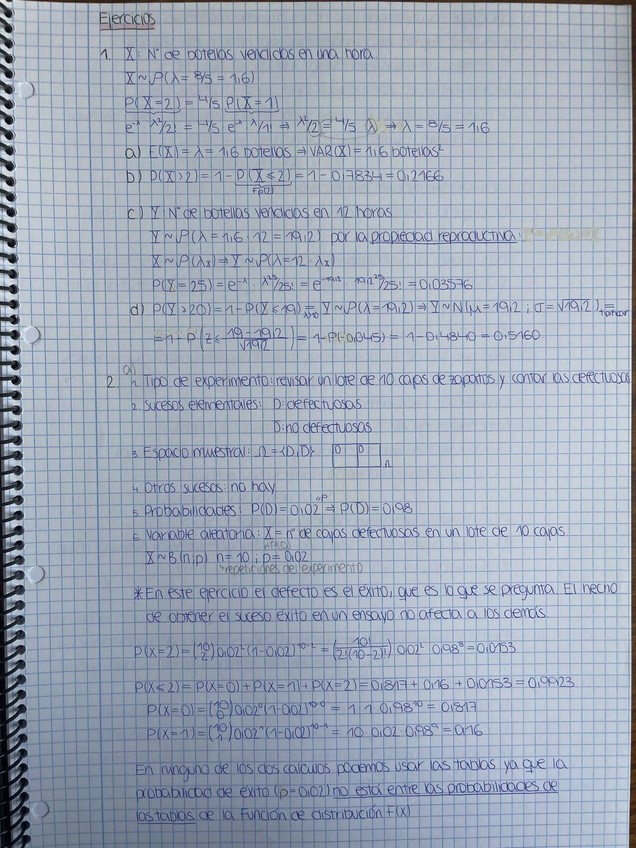 Ejercicios
1. X: Nº de botellas vendidas en una hora.
X~P(λ = 8/5 = 1,6)
P(X=2) = 4/5 P(X=1)
e^-λ λ²/2! = 4/5 e^-λ λ/1! ⇒ λ²/2 = 4/5 λ ⇒ λ = 8/5 = 1,6
a) E(X) = λ = 1,6 botellas ⇒ VAR(X) = 1,6 botellas²
b) P(X>2) = 1 - P(X≤2) = 1 - 0,7834 = 0,2166
c) Y: Nº de botellas vendidas en 12 horas
Y~P(λ = 1,6 · 12 = 19,2) por la propiedad reproductiva:
X~P(λx) ⇒ Y~P(λ = 12·λx)
P(Y=25) = e^-λ · λ^25/25! = e^-19,2 · 19,2^25/25! = 0,03576
d) P(Y>20) = 1 - P(Y≤19) = Y~P(λ=19,2) ⇒ Y~N(μ=19,2 ; σ=√19,2) =
= 1 - P(Z≤ 19-19,2/√19,2) = 1-P(-0,045) = 1-0,4840 = 0,5160
2. a)
1. Tipo de experimento: revisar un lote de 10 cajas de zapatos y contar las defectuosas
2. Sucesos elementales: D: defectuosas
D̄: no defectuosas
3. Espacio muestral: Ω = {D, D̄} D D̄ Ω
4. Otros sucesos: no hay
5. Probabilidades: P(D) = 0,02 =p ⇒ P(D̄) = 0,98
6. Variable aleatoria: X = nº de cajas defectuosas en un lote de 10 cajas
X~B(n;p) n = 10 ; p = 0,02
repeticiones del experimento
* En este ejercicio el defecto es el éxito, que es lo que se pregunta. El hecho
de obtener el suceso éxito en un ensayo no afecta a los demás
P(X=2) = (10 2) 0,02² (1-0,02)^10-2 = (10!/2!(10-2)!) 0,02² 0,98⁸ = 0,0153
P(X≤2) = P(X=0) + P(X=1) + P(X=2) = 0,817 + 0,16 + 0,0153 = 0,9923
P(X=0) = (10 0) 0,02⁰ (1-0,02)^10-0 = 1·1·0,98¹⁰ = 0,817
P(X=1) = (10 1) 0,02¹ (1-0,02)^10-1 = 10·0,02·0,98⁹ = 0,16
En ninguno de los dos calculos podemos usar las tablas ya que la
probabilidad de éxito (p=0,02) no está entre las probabilidades de
las tablas de la función de distribución F(x)